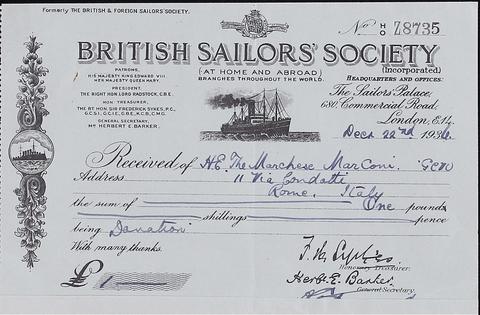 Formerly THE BRITISH & FOREIGN SAILORS' SOCIETY.
No H/O Z8735
BRITISH SAILORS' SOCIETY
(AT HOME AND ABROAD)
(Incorporated)
BRANCHES THROUGHOUT THE WORLD.
PATRONS,
HIS MAJESTY KING EDWARD VIII.
HER MAJESTY QUEEN MARY.
PRESIDENT,
THE RIGHT HON LORD RADSTOCK, C.B.E.
HON. TREASURER,
THE RT HON SIR FREDERICK SYKES, P.C.,
G.C.S.I., G.C.I.E., G.B.E., K.C.B., C.M.G.
GENERAL SECRETARY,
MR HERBERT E. BARKER.
HEADQUARTERS AND OFFICES:
The Sailors Palace,
680, Commercial Road,
London, E.14.
Decr 22nd 1936.
Received of H.E. The Marchese Marconi. GCVO
Address 11 Via Condotti
Rome, Italy
the sum of One pounds
shillings pence
being Donation
With many thanks.
£ 1
Honorary Treasurer.
Herbt. E. Barker
General Secretary.